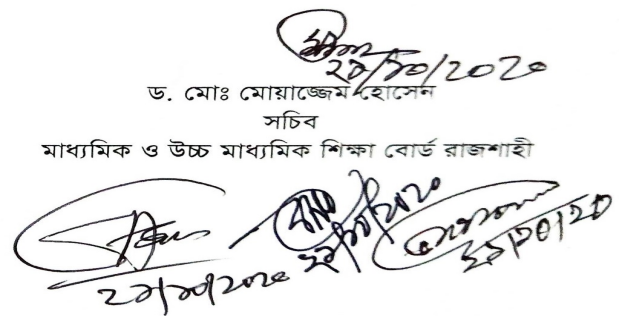 ২৯/১০/২০২০
ড. মোঃ মোয়াজ্জেম হোসেন
সচিব
মাধ্যমিক ও উচ্চ মাধ্যমিক শিক্ষা বোর্ড রাজশাহী
২৯/১০/২০২০
২৯/১০/২০২০
২৯/১০/২০